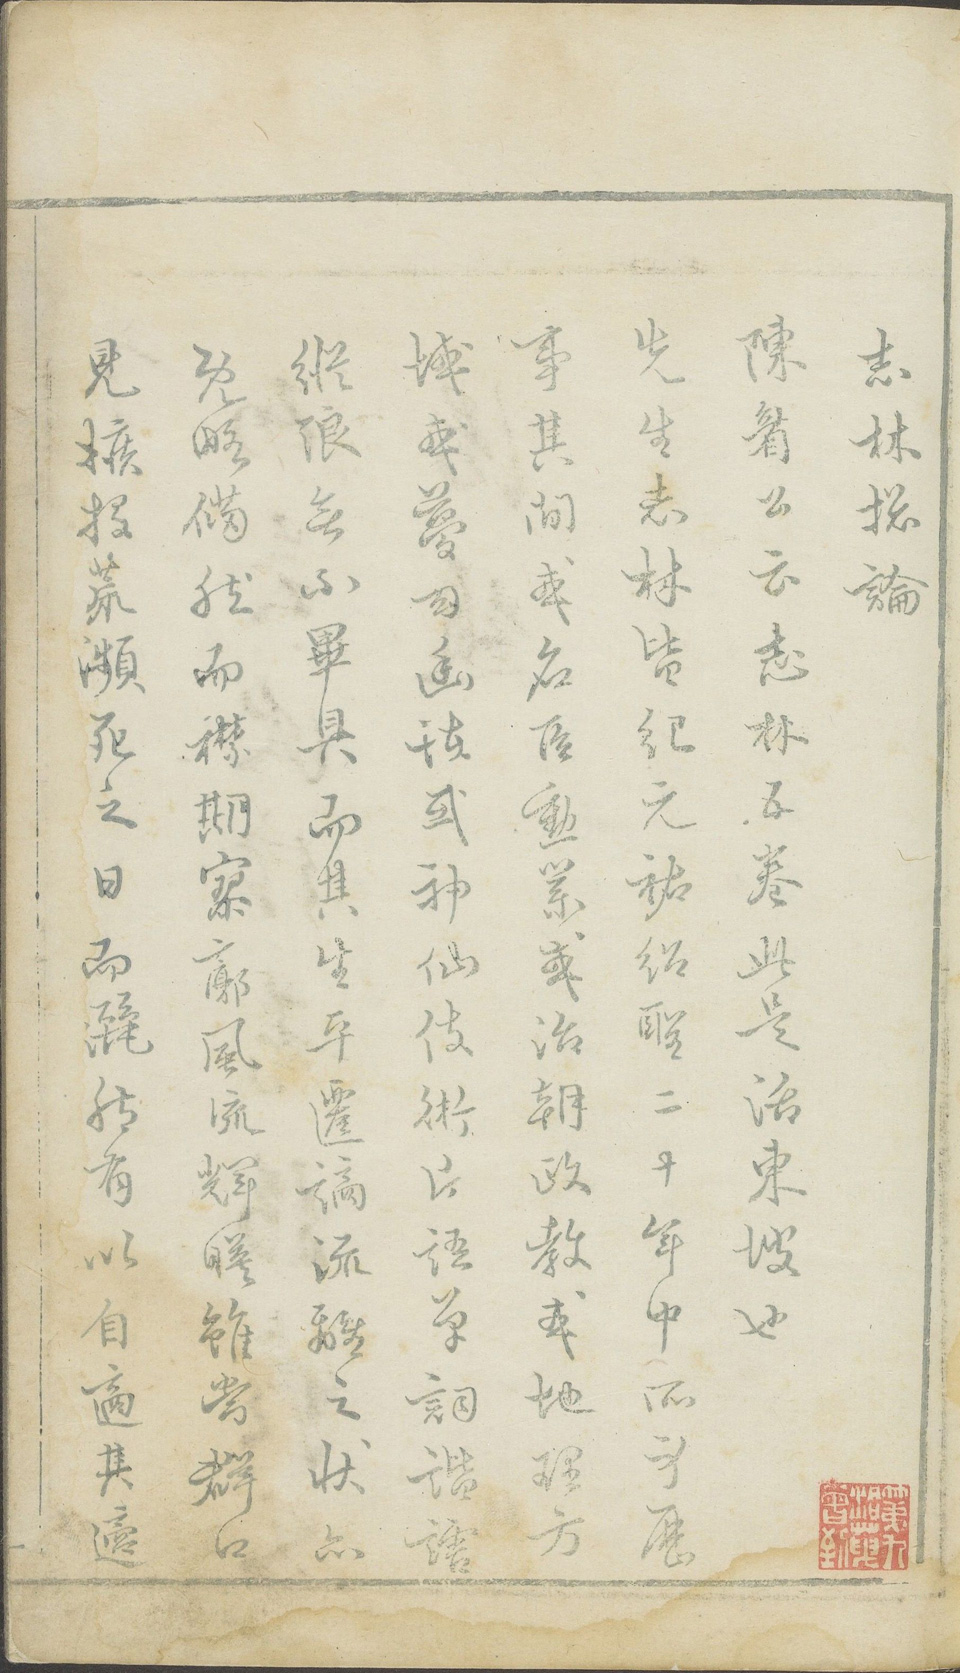 志林總論
陳眉公云志林五卷此是活東坡也
先生志林皆紀元祐紹聖二十年中所身歷
事其間或名臣勳業或治朝政教或地理方
域或夢幻幽怪或神仙伎術片語單詞諧謔
縱浪無不畢具而其生平遷謫流離之狀亦
既略備然而襟期寥廓風流輝暎雖當群口
見擠投荒瀕死之日而灑然有以自適其適